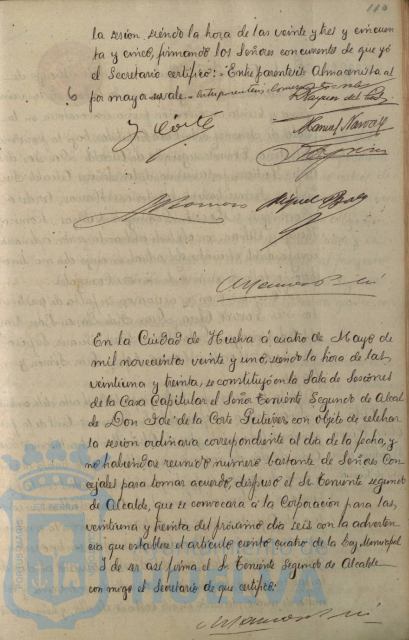 110
la sesion siendo la hora de las veinte y tres y cincuen
ta y cinco, firmando los Señores concurrentes de que yó
el Secretario certifico: = Entre parentesis Almacenista al
por mayor = vale =
Y Corte
Manuel Navarro
Miguel
En la Ciudad de Huelva á cuatro de Mayo de
mil novecientos veinte y uno, siendo la hora de las
veintiuna y treinta, se constituyó en la Sala de Sesiones
de la Casa Capitular el Señor Teniente Segundo de Alcal
de Don José de la Corte Gutierrez, con objeto de celebrar
la sesion ordinaria correspondiente al dia de la fecha, y
no habiendose reunido número bastante de Señores Con
cejales para tomar acuerdo, dispuso el Sr. Teniente segundo
de Alcalde, que se convocara á la Corporacion para las
veintiuna y treinta del próximo dia seis con la adverten
cia que establece el articulo ciento cuatro de la Ley Municipal
Y de ser asi firma el Sr. Teniente Segundo de Alcalde
con migo el Secretario de que certifico:
HUELVA